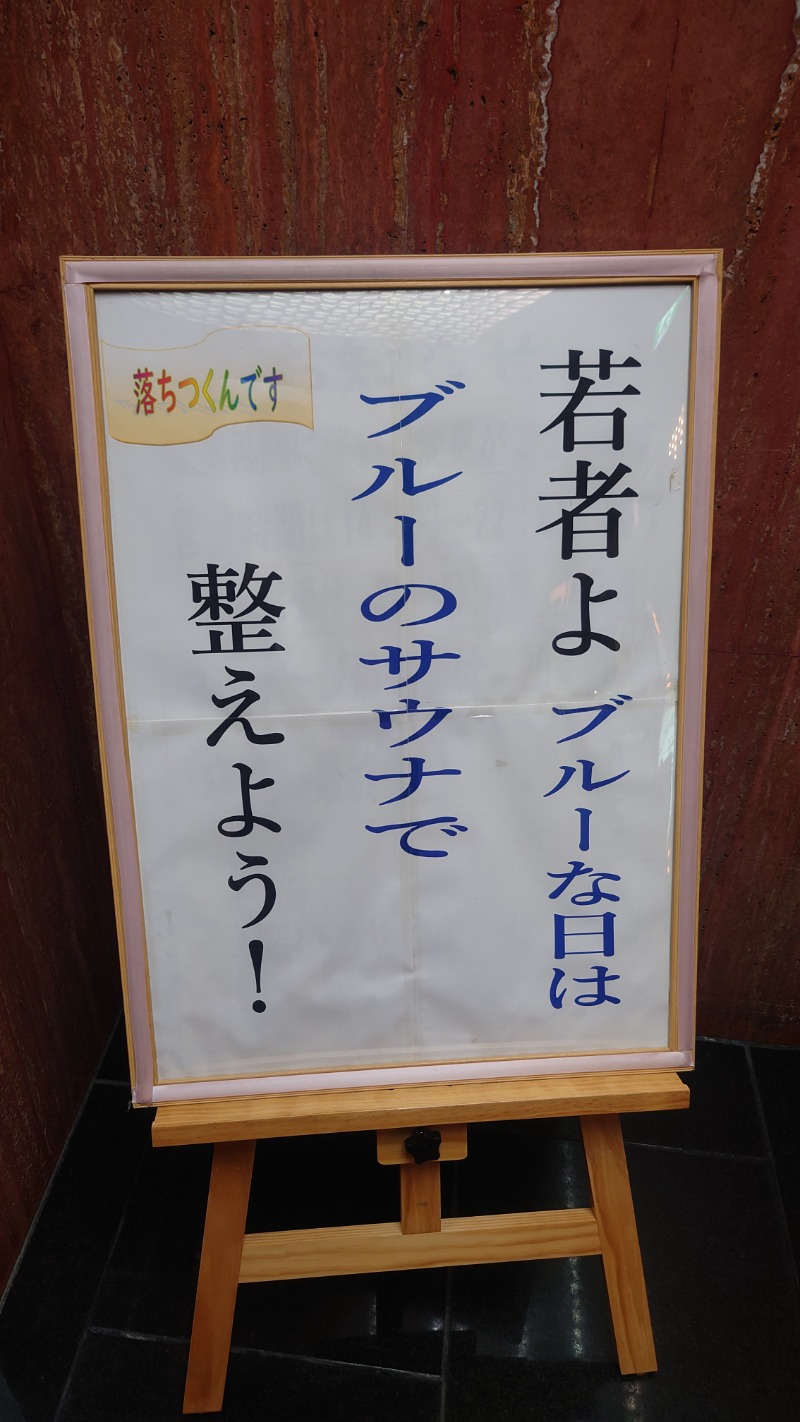 若者よ ブルーな日は
ブルーのサウナで
整えよう！
落ちつくんです